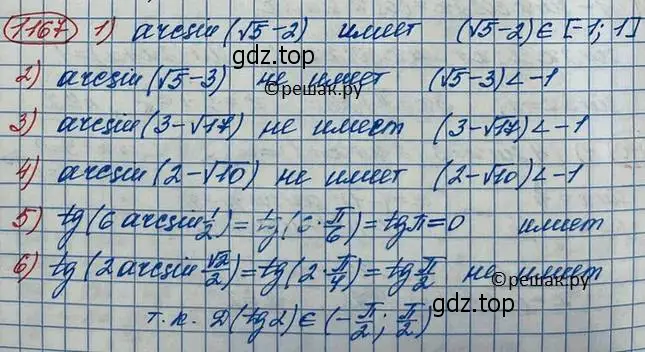 1167 1) arcsin (√5-2) имеет (√5-2) ∈ [-1; 1]
гдз.top
2) arcsin (√5-3) не имеет (√5-3) < -1
©решак.ру
3) arcsin (3-√17) не имеет (3-√17) < -1
4) arcsin (2-√10) не имеет (2-√10) < -1
5) tg (6 arcsin 1/2) = tg (6 · π/6) = tg π = 0 имеет
6) tg (2 arcsin √2/2) = tg (2 · π/4) = tg π/2 не имеет
©решак.ру
т.к. D(tg 2) ∈ (-π/2; π/2)
гдз.top